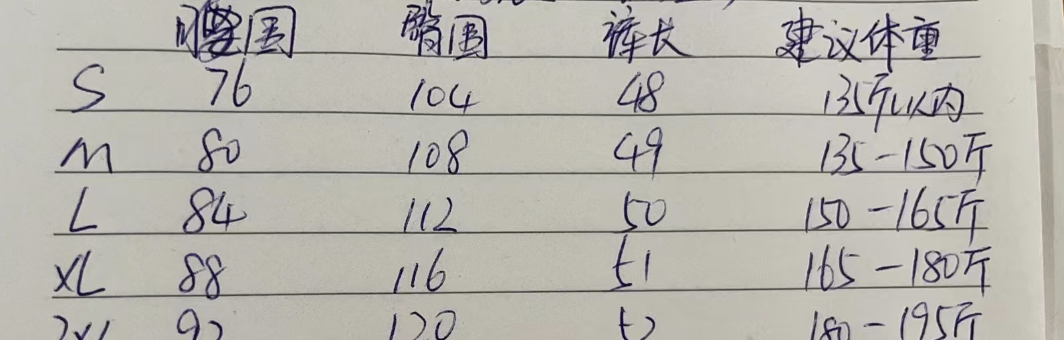 腰围 臀围 裤长 建议体重
S 76 104 48 135斤以内
M 80 108 49 135-150斤
L 84 112 50 150-165斤
XL 88 116 51 165-180斤
2XL 92 120 52 180-195斤